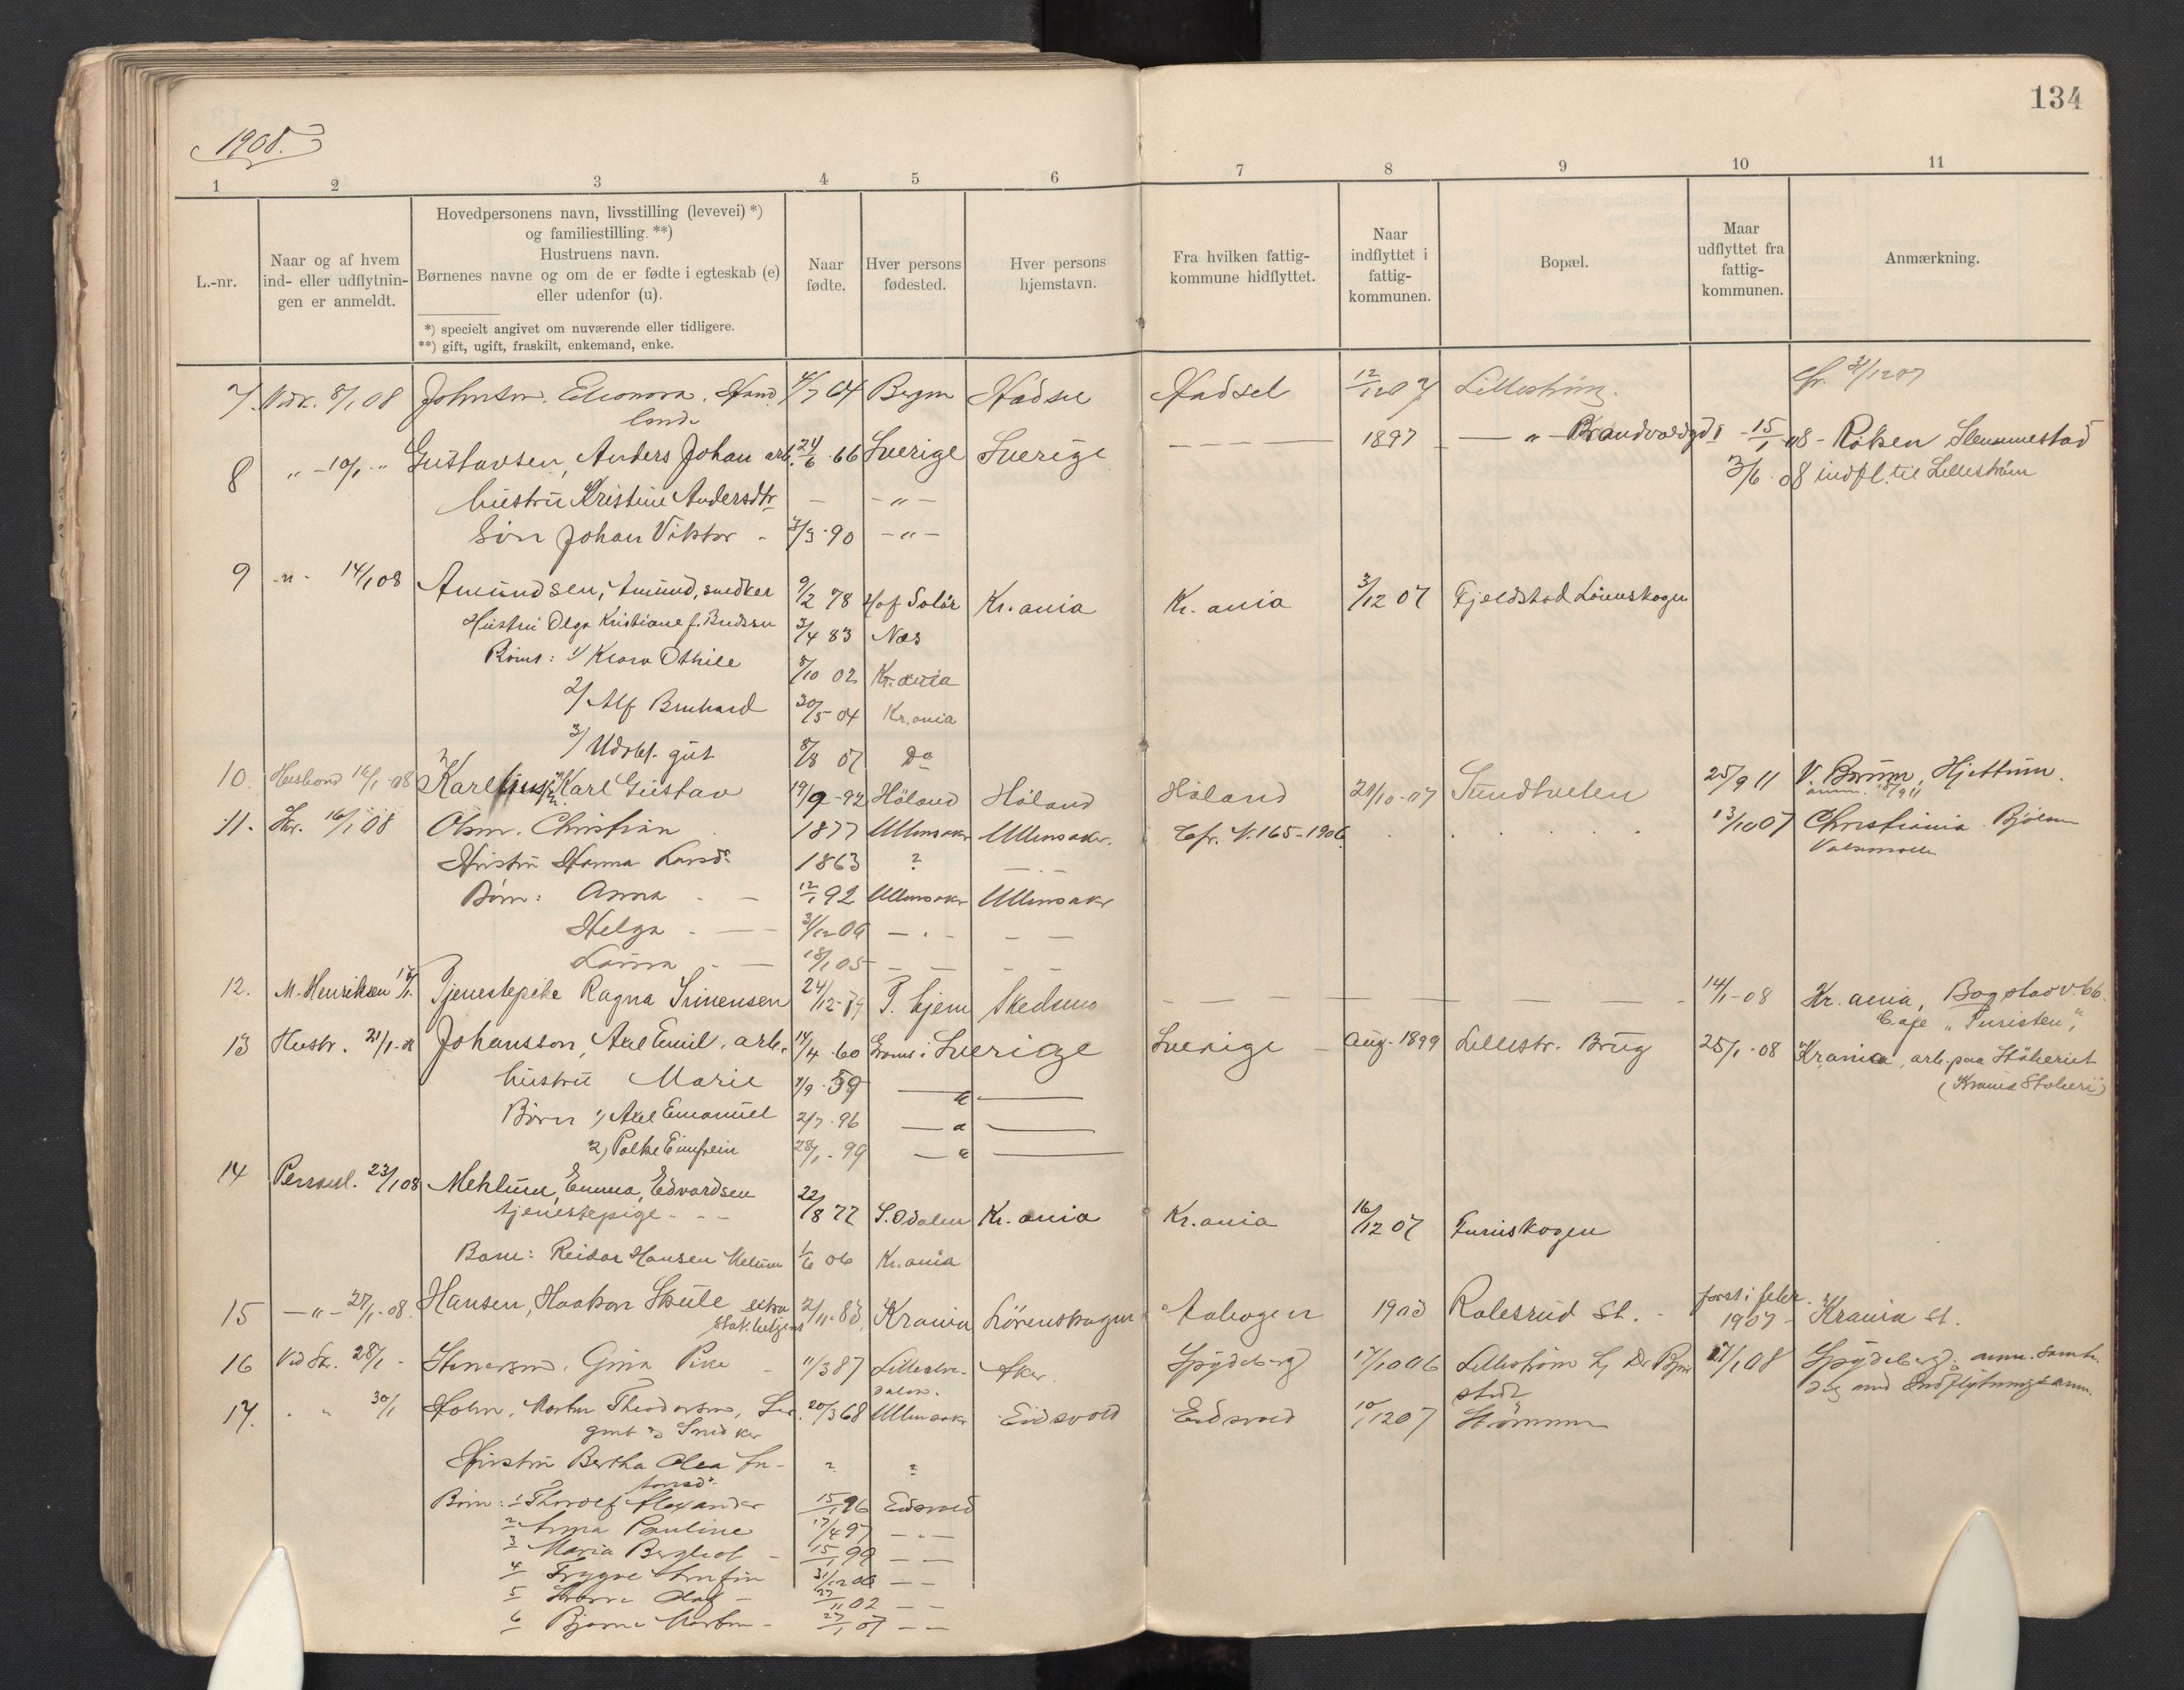 134
1908.
1 2 3 4 5 6 7 8 9 10 11
L.-nr.
Naar og af hvem
ind- eller udflytnin-
gen er anmeldt.
Hovedpersonens navn, livsstilling (levevei) *)
og familiestilling. **)
Hustruens navn.
Børnenes navne og om de er fødte i egteskab (e)
eller udenfor (u).
*) specielt angivet om nuværende eller tidligere.
**) gift, ugift, fraskilt, enkemand, enke.
Naar
fødte.
Hver persons
fødested.
Hver persons
hjemstavn.
Fra hvilken fattig-
kommune hidflyttet.
Naar
indflyttet i
fattig-
kommunen.
Bopæl.
Maar
udflyttet fra
fattig-
kommunen.
Anmærkning.
7. 8/1 08 Johnsen, Eleonora, 4/7 64 Bergen Hadsel Hadsel 12/12 07 Lillestrøm. cfr. 31/12 07
8 " - 10/1 " Gustavsen, Anders Johan arb. 24/6 66 Sverige Sverige — — — 1897 — " — 15/1 08 - Røken Slemmestad
3/6 08 indfl. til Lillestrøm
hustru Kristine Andersdtr — - " -
Søn Johan Viktor - 7/3 90 - " -
9 - " - 14/1 08 Amundsen, Amund, snedker 9/2 78 Hof Solør Kr.ania Kr.ania 3/12 07 Fjeldstad Lørenskogen
Hustru Olga Kristiane f. 3/4 83 Nes
Børns: 1/ Klara Othile 5/10 02 Kr.ania
2/ Alf Bernhard 30/5 04 Kr.ania
3/ Udøbt. gut 8/8 07 Do
10. Husbond 16/1-08 Karl Gustav 19/9-92 Høland Høland Høland 21/10-07 25/9 11 V. Bærum, Hjettum.
anm. 18/9 11
11. 16/1 08 Olsen, Christian 1877 Ullensaker Ullensaker. Cfr. N. 165-1906. 13/10 07 Christiania
Hustru Hanna Larsd. 1863 ? — . —
Børn: Anna - — 12/1 92 Ullensaker Ullensaker
Helga - — — . - — —
Laura - — 18/1 05 — — — —
12. M. Henriksen Tjenestepike Ragna 24/12-79 T. hjem Skedsmo — — — 14/1-08 Kr.ania, Bogstadv. 66.
Cafe "Turisten",
13 Hustr. 21/1-08 Johansson, Axel Emil, arb. 14/4 60 Sverige Sverige — Aug. 1899 Lillestr. Brug 25/1-08 Krania, arb. paa
hustru Marie 7/9 59 — " —
Børn 1, Axel Emanuel 2/7 96 — " —
2, 28/1 99 — " —
14 Personl. 23/1 08 Mehlum, Emma, Edvardsen
tjenestepige - - - 22/8 77 S. Odalen Kr.ania Kr.ania 16/12 07 Furuskogen
Barn: Reidar Hansen Melum 1/6 06 Kr.ania
15 — " — 27/1-08. Hansen, Haakon Skule extra 2/11-83, Krania Lørenskogen Aabogen 1903 Robsrud St. - først i febr.
1907 - Krania st.
16 Ved Sk. 28/1 - Stenersen, Gina Pike - 11/3 87 Aker. Spydeberg 17/10 06 Lillestrøm 17/1 08 Spydeberg, anm. samti-
dig med Indflytningsanm.
17. . " 30/1 Holm, Morten Theodorsen, 20/3 68 Ullensaker Eidsvold Eidsvold 10/12 07 Strømmen
gmt & Snedker
Hustru Bertha Olea ? ?
Børn: 1 Thorolf Alexander 15/1 96 Eidsvold
2 Anna Pauline 17/4 97 — . —
3 Maria Bergliot - 15/1 99 — —
4 Trygve 31/12 00 — —
5 Olaf - 27/11 02 — —
6 Bjarne Morten - 27/1 07 — —